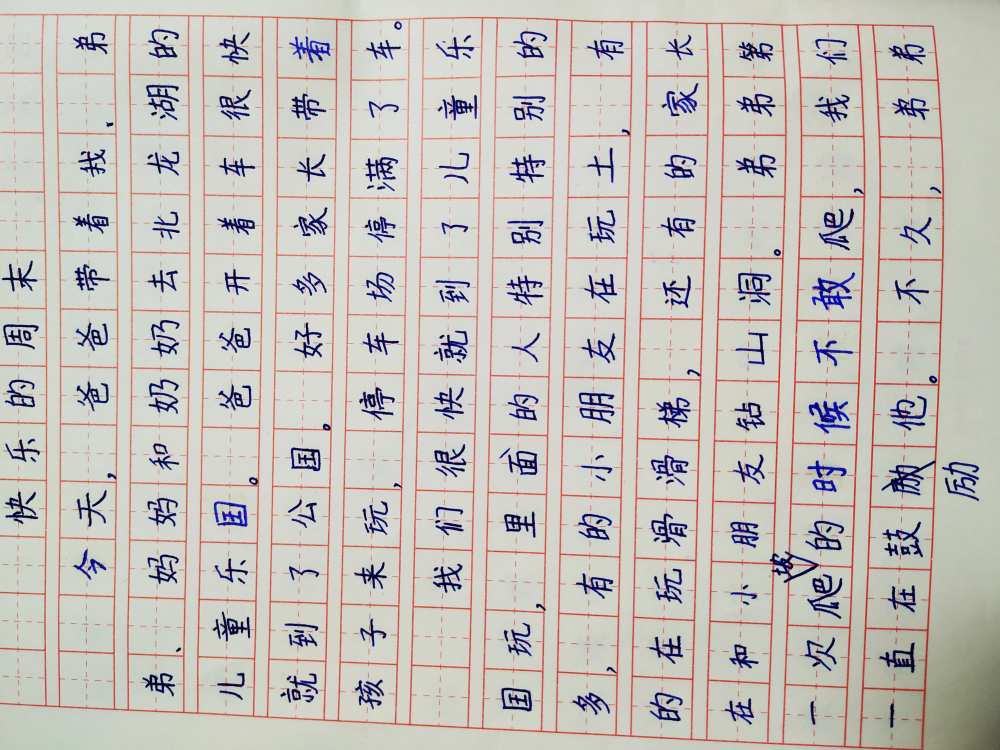 快乐的周末
今天,爸爸带着找、弟
弟、妈妈和奶奶去北龙湖的
儿童乐园。爸爸开着车很快
就到了公园。好多家长带着
孩子来玩,停车场停满了车。
我们很快就到了儿童乐
园玩,里面的人特别特别的
多,有的小朋友在玩土,有
的在玩滑滑梯,还有的家长
在和小朋友钻山洞。弟弟第
一次爬的时候不敢爬,我们
一直在鼓励他。不久,弟弟